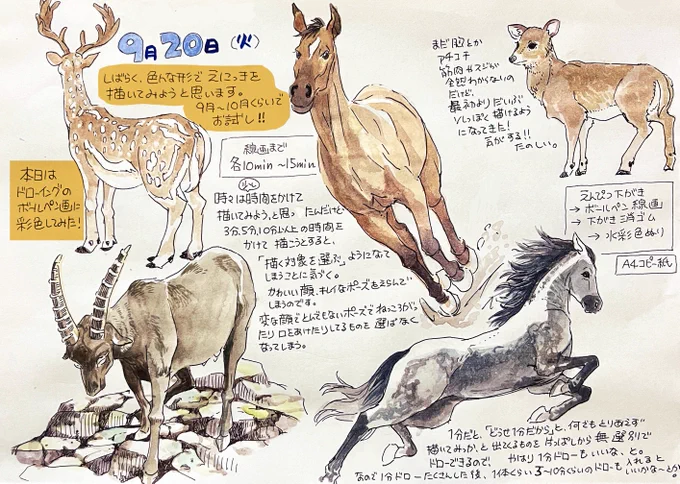 9月20日(火)
しばらく、色んな形でえにっきを
描いてみようと思います。
9月〜10月くらいで
お試し!!
本日は
ドローイングの
ボールペン画に
彩色してみた!
線画まで
各10min〜15min
時々は時間をかけて
描いてみようと思ったんだけど
3分,5分,10分以上の時間を
かけて描こうとすると、
「描く対象を選ぶ」ようになって
しまうことに気づく。
かわいい顔、キレイなポーズをえらんで
しまうのです。
変な顔でとんでもないポーズでねっころがっ
たり口をあけたりしてるものを選ばなく
なってしまう。
まだ胸とか
アチコチ
筋肉やスジが
全然わからないの
だけど、
最初よりだいぶ
ソレっぽく描けるよう
になってきた!
気がする!!
たのしい。
えんぴつ下がき
→ボールペン線画
→下がき消ゴム
→水彩色ぬり
A4コピー紙
1分だと、「どうせ1分だから」と、何でもとりあえず
描いてみっか、と出てくるものを片っぱしから無選別で
ドローできるので、やはり1分ドローもいいな、と。
なので1分ドローたくさんした後、1体くらい3〜10分くらいのドローも入れると
いいかな〜とか。